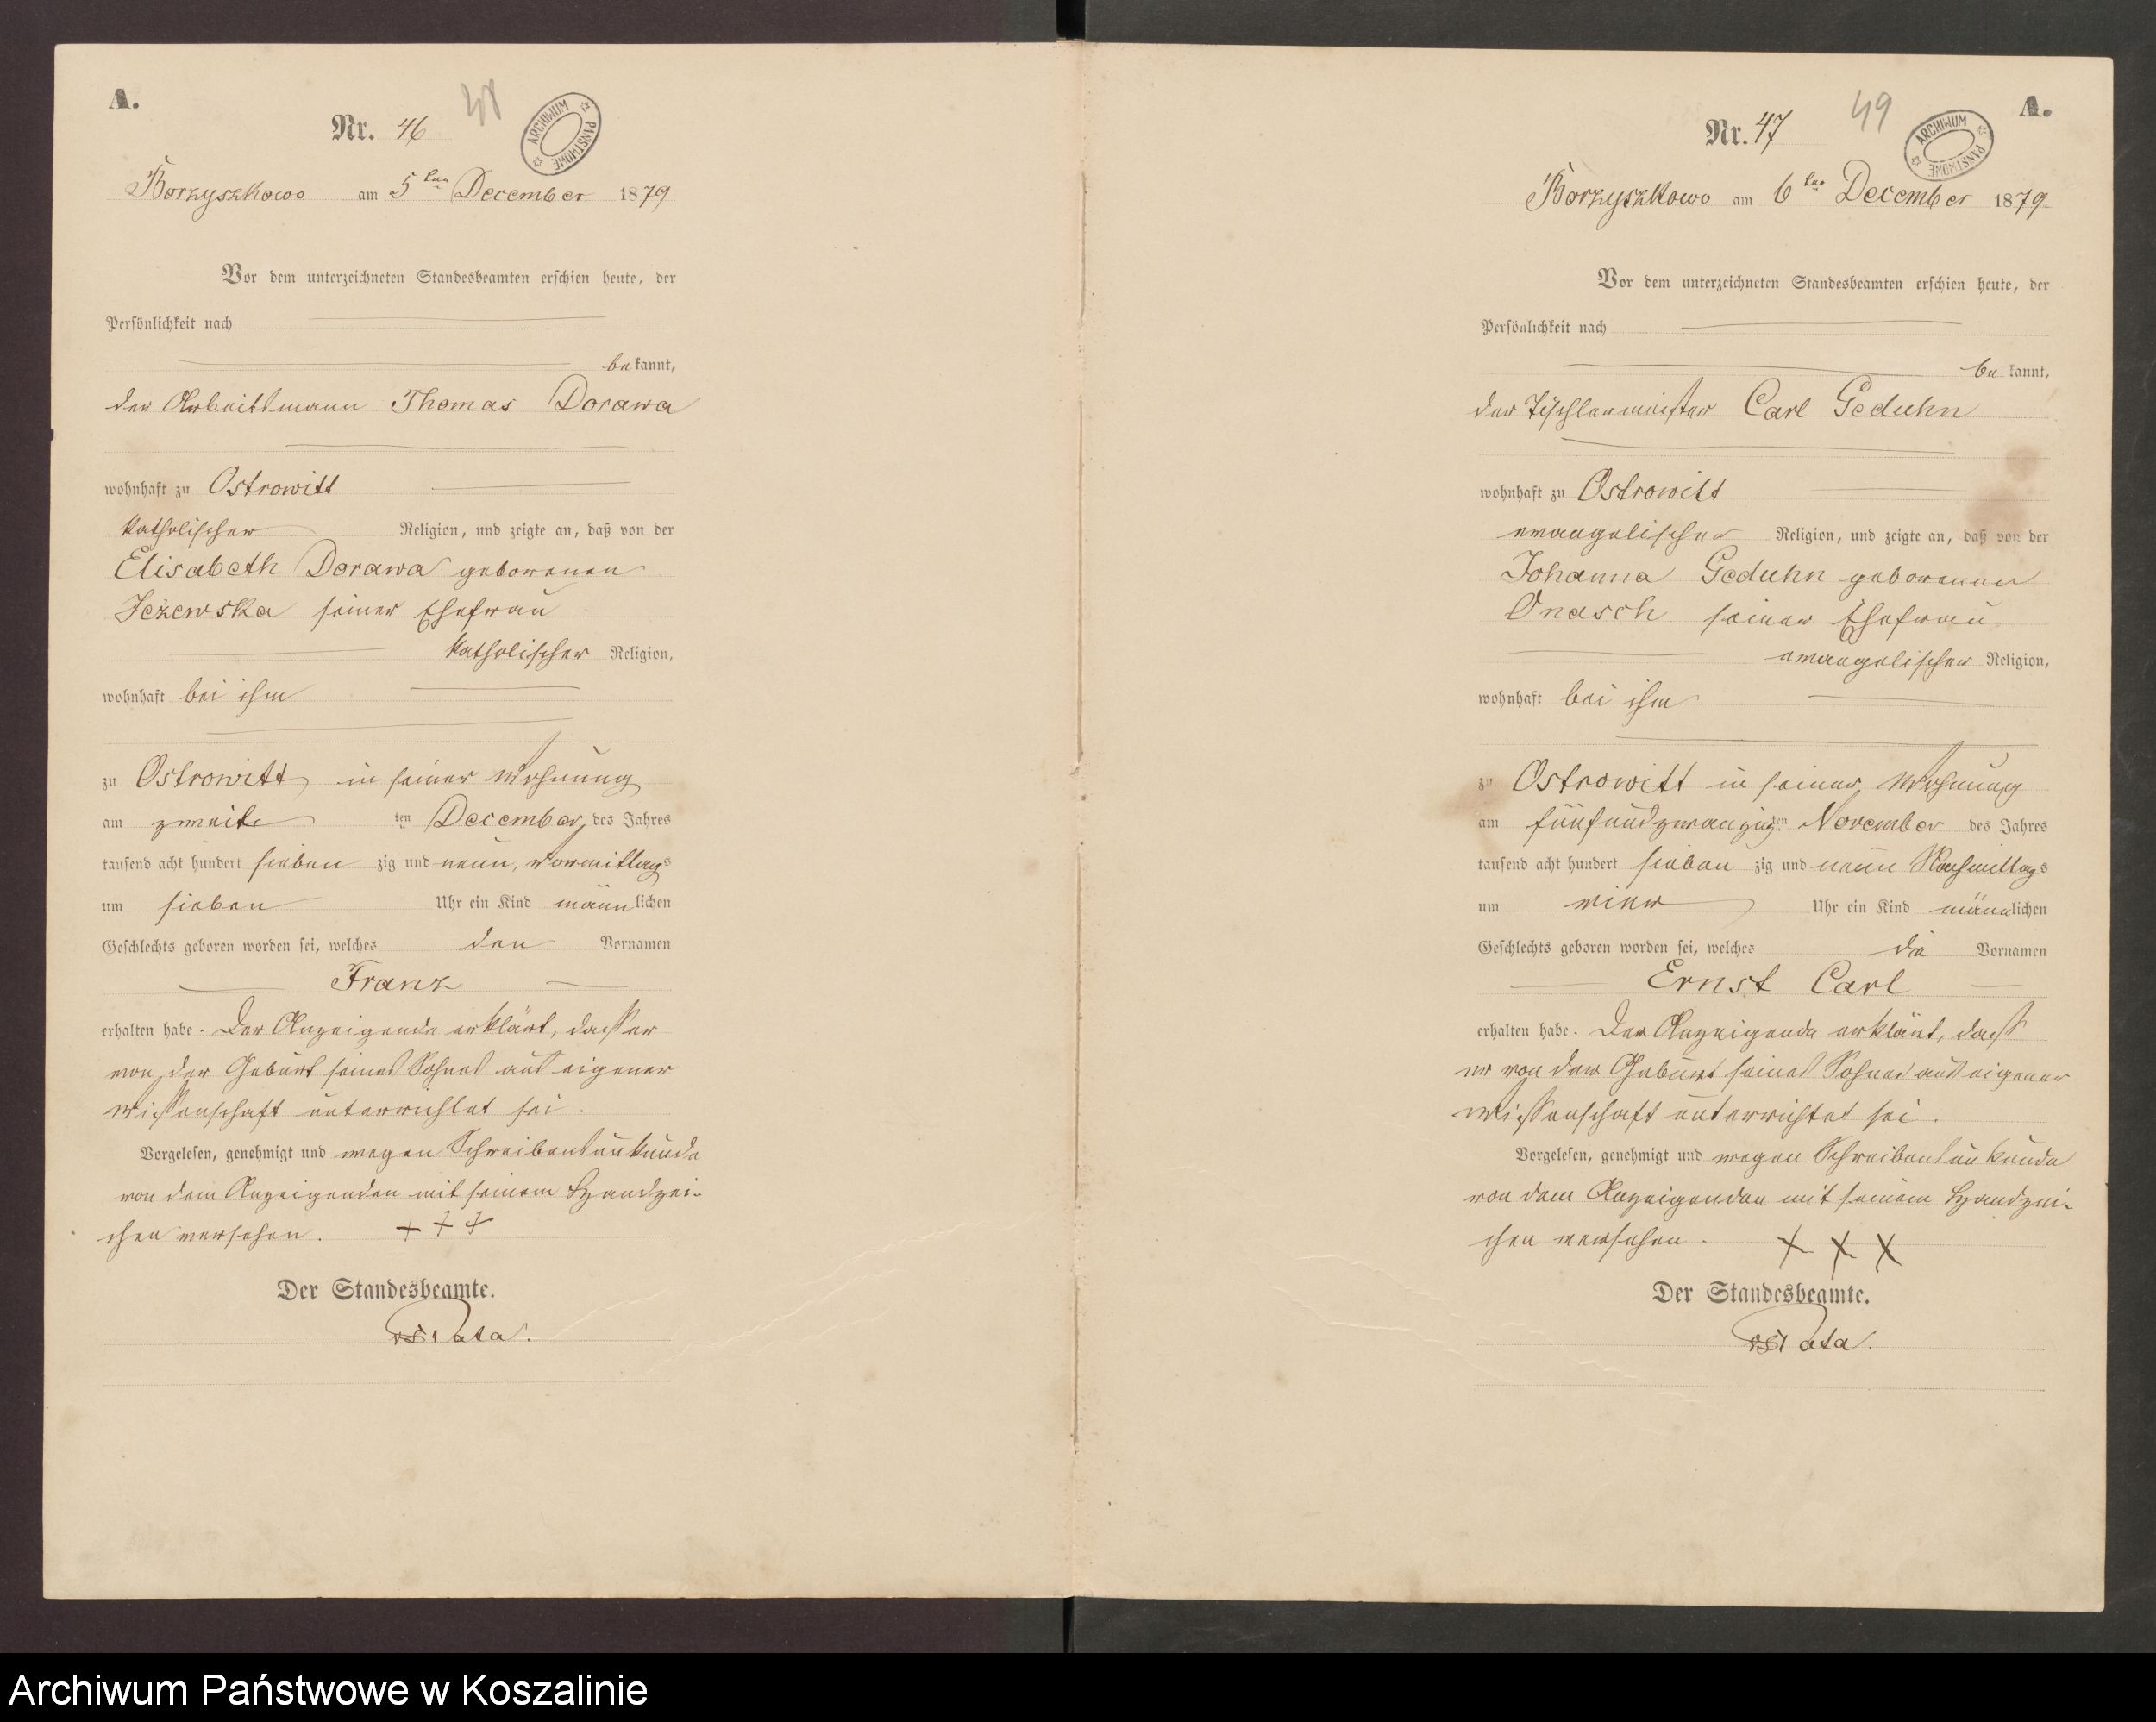 A.
48
Nr. 46
ARCHIWUM PAŃSTWOWE
Borzyszkowo am 5ten December 1879
Vor dem unterzeichneten Standesbeamten erschien heute, der
Persönlichkeit nach
bekannt,
der Arbeitsmann Thomas Dorawa
wohnhaft zu Ostrowitt
katholischer Religion, und zeigte an, daß von der
Elisabeth Dorawa geborenen
Jeżewska seiner Ehefrau
katholischer Religion,
wohnhaft bei ihm
zu Ostrowitt in seiner Wohnung
am zweite ten December, des Jahres
tausend acht hundert sieben zig und neun, Vormittags
um sieben Uhr ein Kind männlichen
Geschlechts geboren worden sei, welches den Vornamen
Franz
erhalten habe. Der Anzeigende erklärt, dass er
von der Geburt seines Sohnes aus eigener
Wissenschaft unterrichtet sei.
Vorgelesen, genehmigt und wegen Schreibensunkunde
von dem Anzeigenden mit seinem Handzei-
chen versehen. + + +
Der Standesbeamte.
A.
49
Nr. 47
ARCHIWUM PAŃSTWOWE
Borzyszkowo am 6ten December 1879
Vor dem unterzeichneten Standesbeamten erschien heute, der
Persönlichkeit nach
bekannt,
der Tischlermeister Carl Geduhn
wohnhaft zu Ostrowitt
evangelischer Religion, und zeigte an, daß von der
Johanna Geduhn geborenen
Onasch seiner Ehefrau
evangelischer Religion,
wohnhaft bei ihm
zu Ostrowitt in seiner Wohnung
am fünfundzwanzigten November des Jahres
tausend acht hundert sieben zig und neun Nachmittags
um vier Uhr ein Kind männlichen
Geschlechts geboren worden sei, welches die Vornamen
Ernst Carl
erhalten habe. Der Anzeigende erklärt, dass
er von der Geburt seines Sohnes aus eigener
Wissenschaft unterrichtet sei.
Vorgelesen, genehmigt und wegen Schreibensunkunde
von dem Anzeigenden mit seinem Handzei-
chen versehen. X X X
Der Standesbeamte.
Archiwum Państwowe w Koszalinie